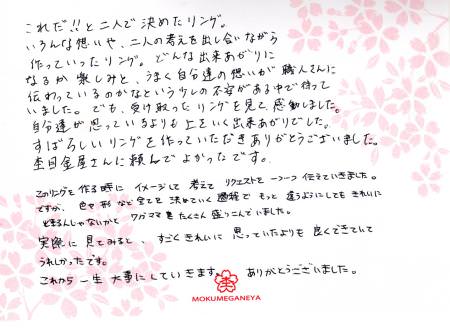 これだ!!と二人で決めたリング。
いろんな想いや、二人の考えを出し合いながら
作っていったリング。どんな出来あがりに
なるか楽しみと、うまく自分達の想いが職人さんに
伝わっているのかなという少しの不安がある中で待って
いました。でも、受け取ったリングを見て、感動しました。
自分達が思っているよりも上をいく出来あがりでした。
すばらしいリングを作っていただきありがとうございました。
杢目金屋さんに頼んでよかったです。
このリングを作る時にイメージして考えてリクエストを一つ一つ伝えていきました。
ですが、色や形など全てを決めていく過程でもっと違うようにしてもきれいに
出きるんじゃないかとワガママもたくさん盛りこんでいました。
実際に見てみると、すごくきれいに思っていたよりも良くできていて
うれしかったです。
これから一生大事にしていきます。ありがとうございました。
MOKUMEGANEYA